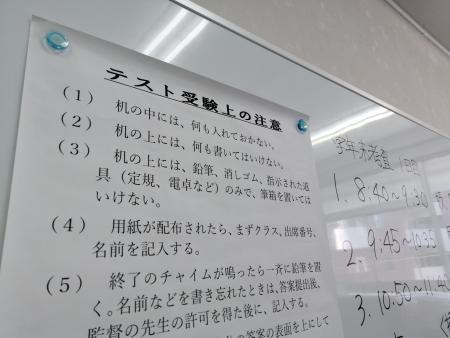 テスト受験上の注意
(1) 机の中には、何も入れておかない。
(2) 机の上には、何も書いてはいけない。
(3) 机の上には、鉛筆、消しゴム、指示された道
具(定規、電卓など)のみで、筆箱を置いては
いけない。
(4) 用紙が配布されたら、まずクラス、出席番号、
名前を記入する。
(5) 終了のチャイムが鳴ったら一斉に鉛筆を置
く。名前などを書き忘れたときは、答案提出後、
監督の先生の許可を得た後に、記入する。
の答案の表面を上にして
学年末考査 1日目
1. 8:40~9:30
2. 9:45~10:35
3. 10:50~11:40